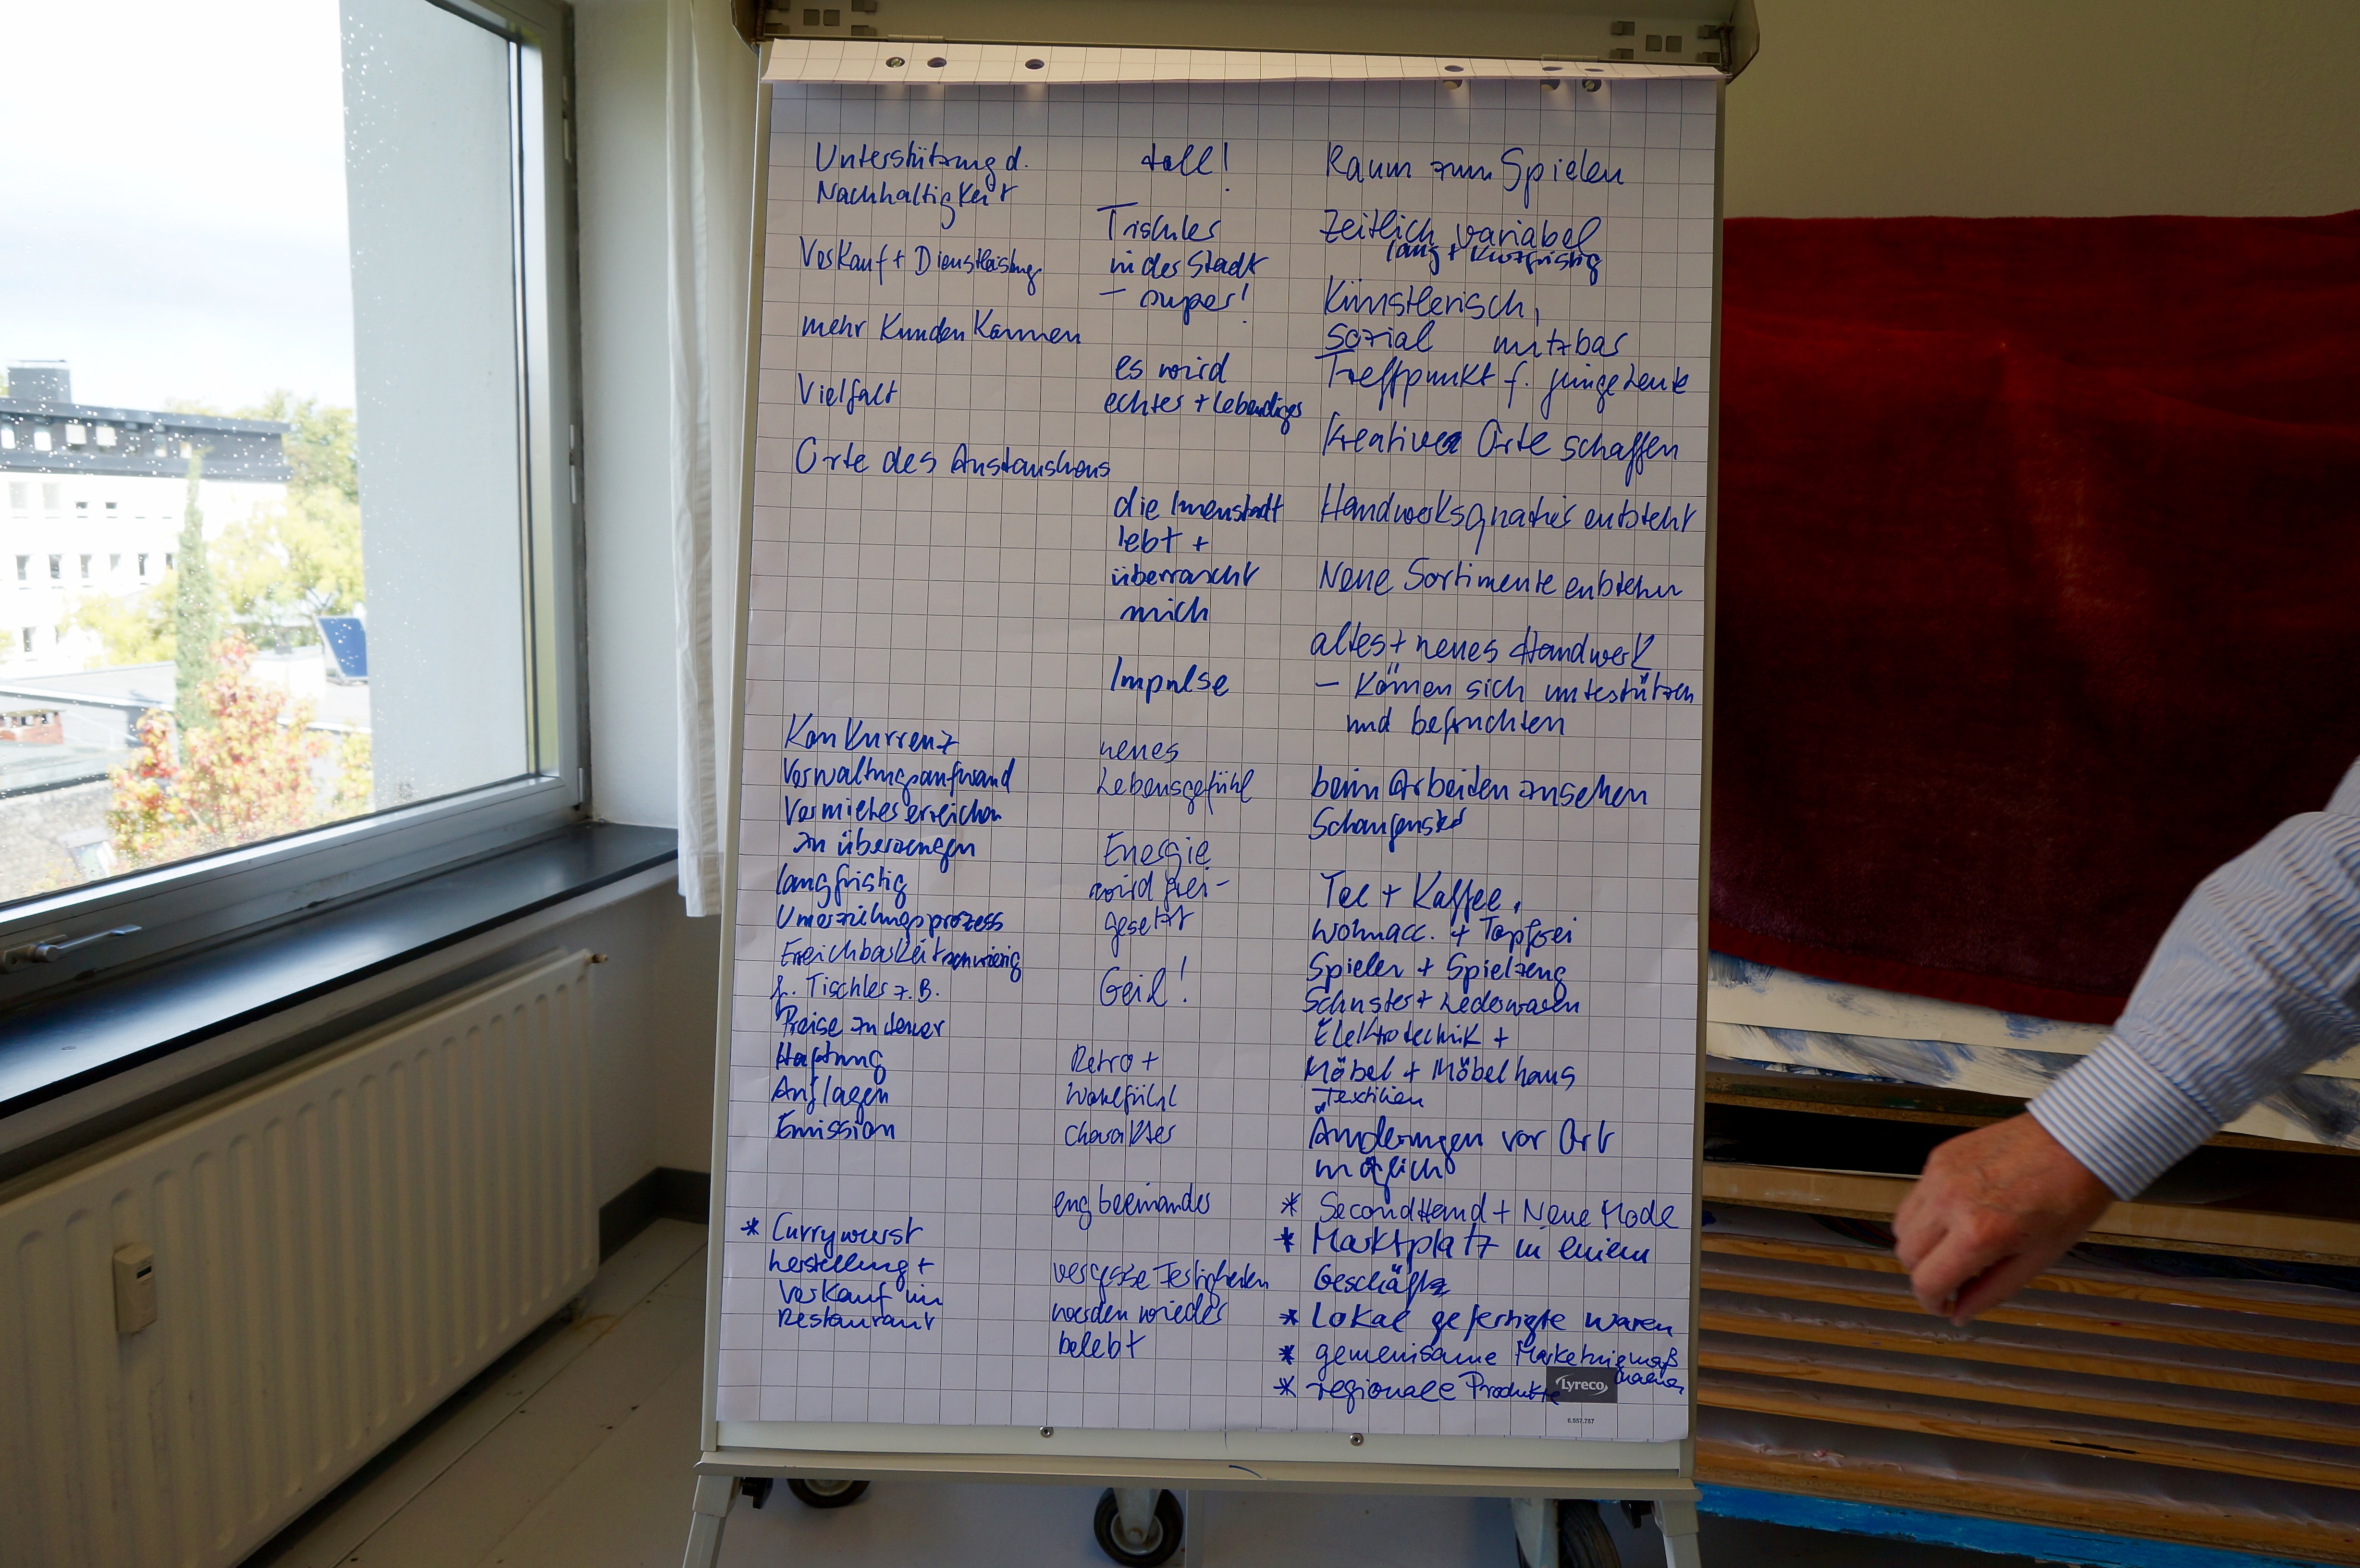 Unterstützung d.
Nachhaltigkeit
Verkauf + Dienstleistung
mehr Kunden kommen
Vielfalt
Orte des Austauschens
Konkurrenz
Verwaltungsaufwand
Vermieter erreichen
zu überzeugen
langfristig
Umerziehungsprozess
Erreichbarkeit schwierig
f. Tischler z.B.
Preise zu teuer
Haftung
Auflagen
Emission
* Currywurst
herstellung +
Verkauf im
Restaurant
toll!
Tischler
in der Stadt
– super!
es wird
echter + lebendiger
die Innenstadt
lebt +
überrascht
mich
Impulse
neues
Lebensgefühl
Energie
wird frei-
gesetzt
Geil!
Retro +
Wohlfühl
charakter
eng beeinander
werden wieder
belebt
Raum zum Spielen
Zeitlich variabel
lang + kurzfristig
Künstlerisch,
sozial nutzbar
Treffpunkt f. junge Leute
Kreative Orte schaffen
Handwerksquartier entsteht
Neue Sortimente entstehn
altes + neues Handwerk
– können sich unterstützen
und befruchten
beim Arbeiten zusehen
Schaufenster
Tee + Kaffee,
Wohnacc. + Töpferei
Spieler + Spielzeug
Schuster + Lederwaren
Elektrotechnik +
Möbel + Möbelhaus
Textilien
Änderungen vor Ort
möglich
* SecondHand + Neue Mode
* Marktplatz in einem
Geschäft
* Lokal gefertigte Waren
* gemeinsame Marketingmaß
nahmen
* regionale Produkte
Lyreco
6.557.787